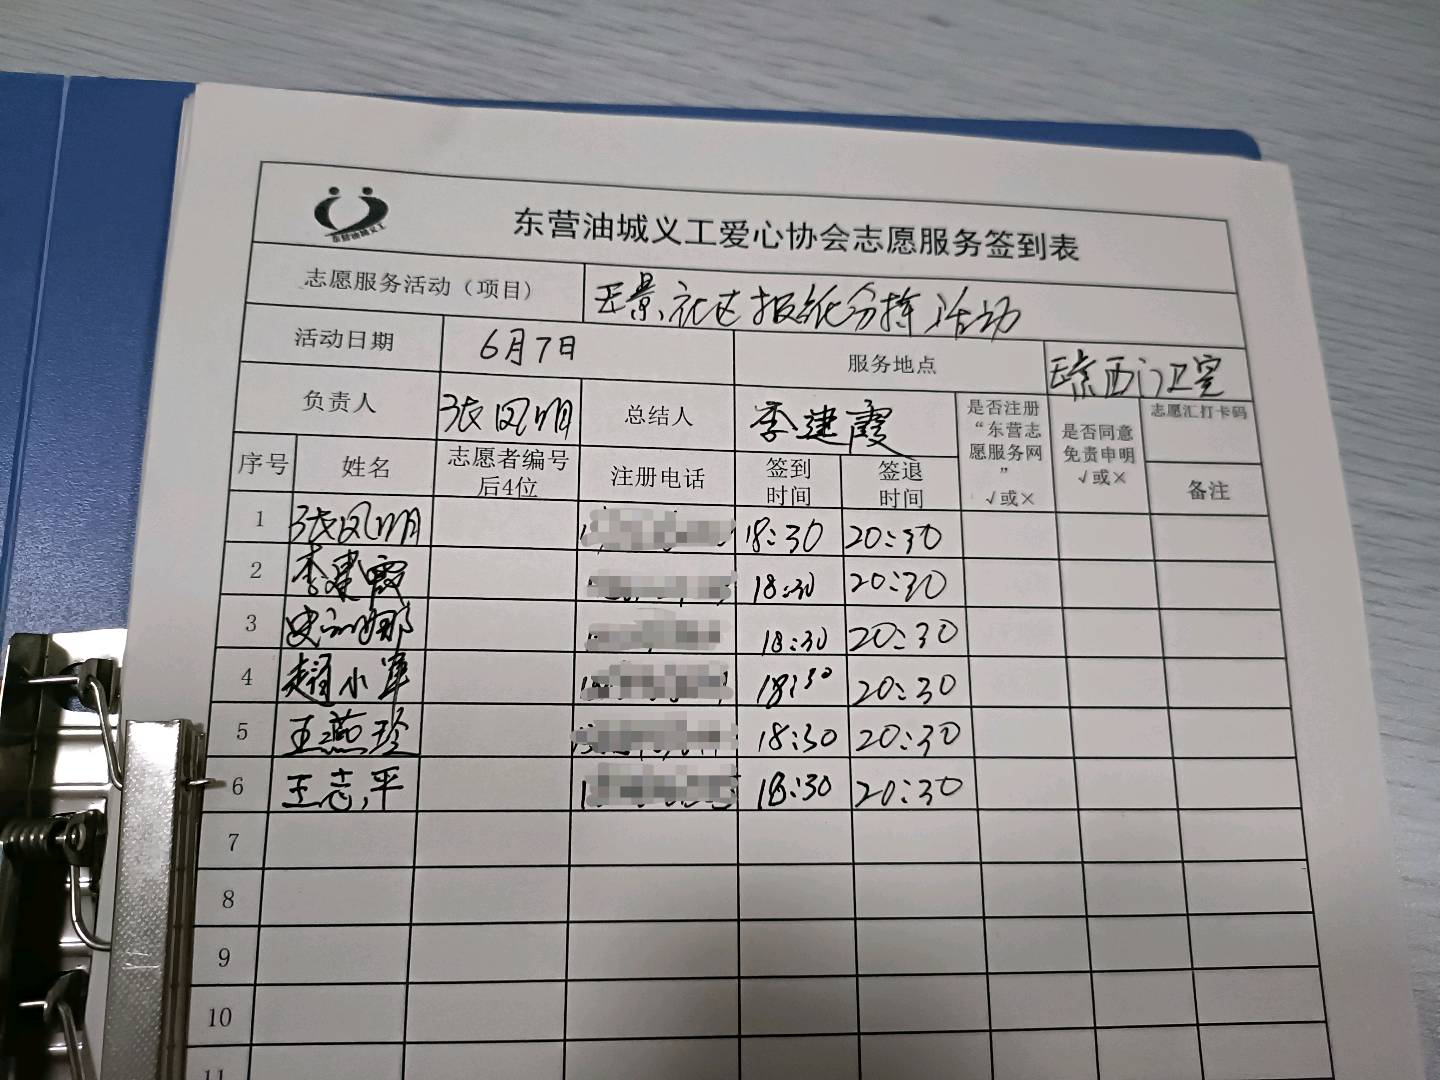 东营油城义工
东营油城义工爱心协会志愿服务签到表
志愿服务活动（项目） 社区报纸分拣活动
活动日期 6月7日 服务地点 西门卫室
负责人 张凤明 总结人 李建霞 是否注册“东营志愿服务网” √或× 是否同意免责申明 √或× 志愿汇打卡码
序号 姓名 志愿者编号后4位 注册电话 签到时间 签退时间 备注
1 张凤明 18:30 20:30
2 李建霞 18:30 20:30
3 18:30 20:30
4 赵小军 18:30 20:30
5 王燕珍 18:30 20:30
6 王志平 18:30 20:30
7
8
9
10
11